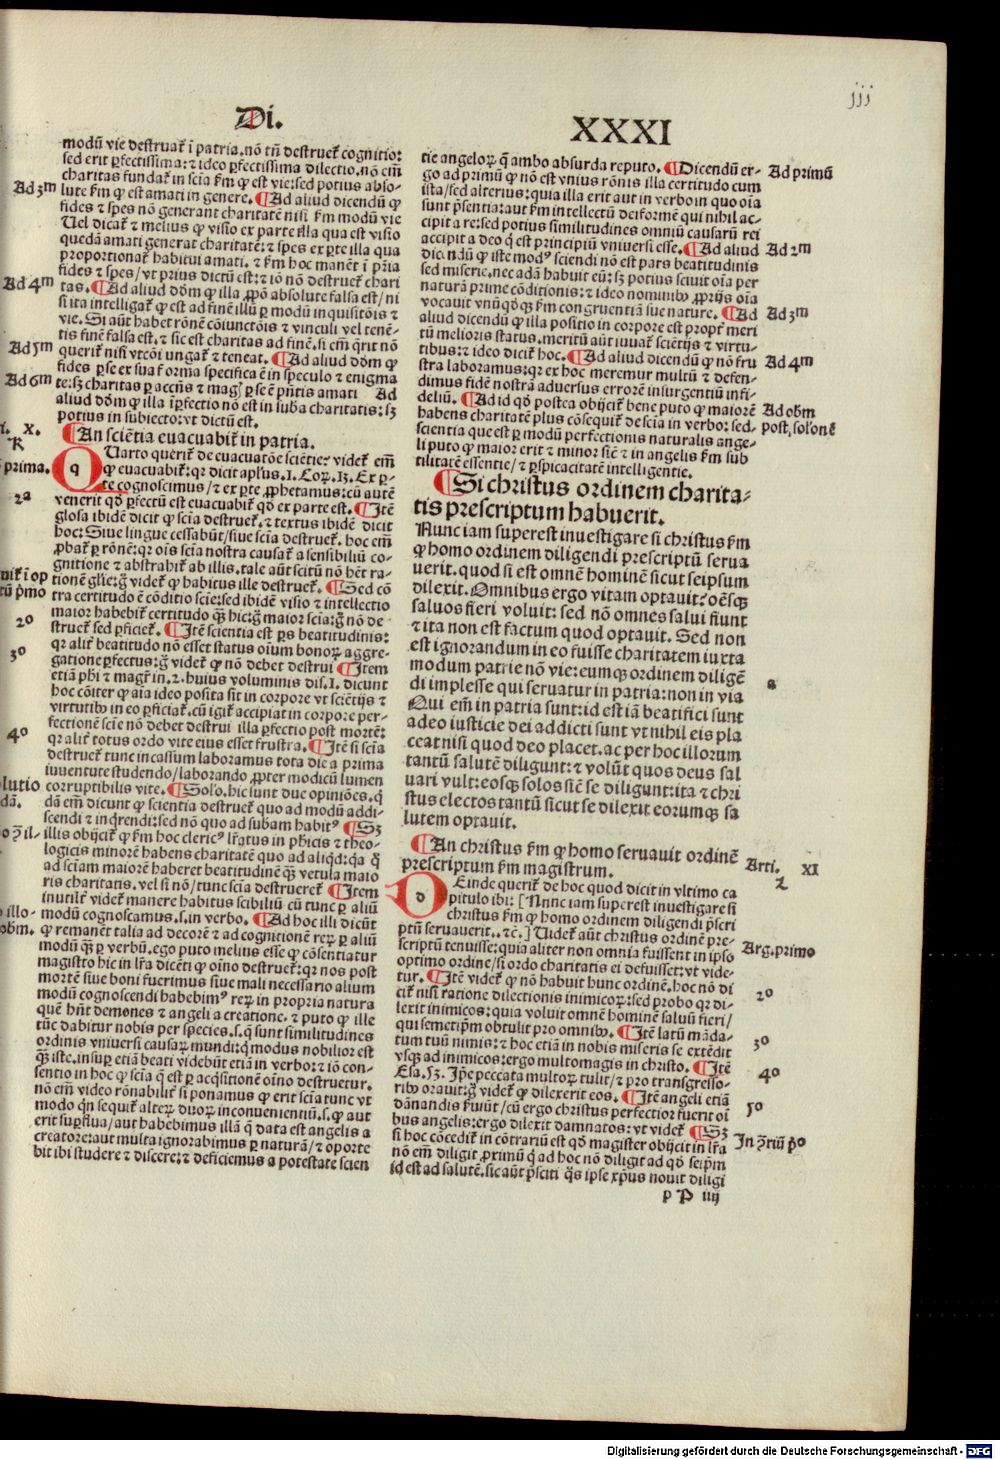 iij
Di.
XXXI
modū vie destruat᷑ ī patria. nō tn̄ destruet᷑ cognitio:
sed erit ꝑfectissima: ⁊ ideo ꝑfectissima dilectio. nō em̄
charitas fundat᷑ in scīa ẜm ꝙ est vie: sed potius abso-
lute ẜm ꝙ est amati in genere. ¶ Ad aliud dicendū ꝙ
fides ⁊ spes nō generant charitatē nisi ẜm modū vie
Uel dicat᷑ ⁊ melius ꝙ visio ex parte illa qua est visio
quedā amati generat charitatē: ⁊ spes ex ꝑte illa qua
proportionat᷑ habitui amati. ⁊ ẜm hoc manēt ī pr̄ia
fides ⁊ spes / vt prius dictū est: ⁊ iō nō destruet᷑ chari
tas. ¶ Ad aliud dōm ꝙ illa ꝓpō absolute falsa est / ni
si ita intelligat᷑ ꝙ est ad finē illū ꝑ modū inquisitōis ⁊
vie. Si aūt habet rōnē cōiunctōis ⁊ vinculi vel tenē-
tis finē falsa est. ⁊ sic est charitas ad finē. si em̄ q̄rit nō
querit᷑ nisi vt cōiungat᷑ ⁊ teneat. ¶ Ad aliud dōm ꝙ
fides ꝑ se ex sua forma specifica ē in speculo ⁊ enigma
te: sꝫ charitas ꝑ accn̄s ⁊ magꝭ ꝑ se ē pn̄tis amati Ad
aliud dōm ꝙ illa īꝑfectio nō est in sub̄a charitatis: sꝫ
potius in subiecto: vt dictū est.
¶ An sciētia euacuabit᷑ in patria.
QUarto querit᷑ de euacuatōe sciētie? videt᷑ em̄
ꝙ euacuabit᷑: qꝛ dicit apl̄us. 1. Coꝝ. 13. Ex ꝑ-
te cognoscimus / ⁊ ex ꝑte ꝓphetamus: cū autē
venerit qđ ꝑfectū est euacuabit᷑ qđ ex parte est. ¶ Itē
glosa ibidē dicit ꝙ scīa destruet᷑. ⁊ textus ibidē dicit
hoc: Siue lingue cessabūt / siue scīa destruet᷑. hoc em̄
ꝓbat᷑ ꝑ rōnē: qꝛ oīs scīa nostra causat᷑ a sensibiliū co-
gnitione ⁊ abstrahit᷑ ab illis. tale aūt scitū nō hēt ra-
tionē gl̄ie: g̊ videt᷑ ꝙ habitus ille destruet᷑. ¶ Sed cō
tra certitudo ē cōditio scīe: sed ibidē visio ⁊ intellectio
maior habebit᷑ certitudo qꝫ hic: g̊ maior scīa: g̊ nō de
struet᷑ sed ꝑficiet᷑. ¶ Itē scientia est ꝑs beatitudinis:
qꝛ alit᷑ beatitudo nō esset status oīum bonoꝝ aggre-
gatione ꝑfectus: g̊ videt᷑ ꝙ nō debet destrui ¶ Item
etiā phi ⁊ magr̄ in. 2. huius voluminis dis. 1. dicunt
hoc cōiter ꝙ aīa ideo posita sit in corpore vt sciētijs ⁊
virtutibꝰ in eo ꝑficiat᷑. cū igit᷑ accipiat in corpore per-
fectionē scīe nō debet destrui illa ꝑfectio post mortē:
qꝛ alit᷑ totus ordo vite eius esset frustra. ¶ Itē si scīa
destruet᷑ tunc incassum laboramus tota die a prima
iuuentute studendo / laborando ꝓpter modicū lumen
corruptibilis vite. ¶ Solō. hic sunt due opiniōes. q̄
dā em̄ dicunt ꝙ scientia destruet᷑ quo ad modū addi-
scendi ⁊ inq̄rendi: sed nō quo ad sub̄am habitꝰ ¶ Sꝫ
illis obijcit᷑ ꝙ ẜm hoc clericꝰ lr̄atus in phīcis ⁊ theo-
logicis minorē habens charitatē quo ad aliqđ: q̄a q̊
ad sciam maiorē haberet beatitudinē qꝫ vetula maio
ris charitatis. vel si nō / tunc scīa destrueret᷑ ¶ Item
inutilit᷑ videt᷑ manere habitus scibiliū cū tunc ꝑ aliū
modū cognoscamus. s. in verbo. ¶ Ad hoc illi dicūt
ꝙ remanēt talia ad decorē ⁊ ad cognitionē reꝝ ꝑ aliū
modū qꝫ ꝑ verbū. ego puto melius esse ꝙ cōsentiatur
magistro hic in lr̄a dicēti ꝙ oīno destruet᷑: qꝛ nos post
mortē siue boni fuerimus siue mali necessario alium
modū cognoscendi habebimꝰ reꝝ in propria natura
quē hn̄t demones ⁊ angeli a creatione. ⁊ puto ꝙ ille
tūc dabitur nobis per species. s. q̄ sunt similitudines
ordinis vniuersi causaꝝ mundi: q̄ modus nobilior est
qꝫ iste. insuꝑ etiā beati videbūt etiā in verbo: ⁊ iō con-
sentio in hoc ꝙ scīa q̄ est ꝑ acq̄sitionē oīno destruetur.
nō em̄ video rōnabilit᷑ si ponamus ꝙ erit scīa tunc vt
modo qn̄ sequit᷑ alteꝝ duoꝝ inconuenientiū. s. ꝙ aut
erit suꝑflua / aut habebimus illā q̄ data est angelis a
creatore: aut multa ignorabimus ꝑ naturā / ⁊ oporte
bit ibi studere ⁊ discere: ⁊ deficiemus a potestate scien
Ad 3m
Ad 4m
Ad 5m
Ad 6m
X.
prima.
2a
20
30
40
tie angeloꝝ q̄ ambo absurda reputo. ¶ Dicendū er-
go ad primū ꝙ nō est vnius rōnis illa certitudo cum
ista / sed alterius: quia illa erit aut in verbo in quo oīa
sunt pn̄sentia: aut ẜm intellectū deiformē qui nihil ac-
cipit a re: sed potius similitudines omniū causarū rei
accipit a deo q̄ est principiū vniuersi esse. ¶ Ad aliud
dicendū ꝙ iste modꝰ sciendi nō est pars beatitudinis
sed miserie. nec adā habuit eū: sꝫ potius sciuit oīa per
naturā prime cōditionis: ⁊ ideo nominibꝰ ꝓprijs oīa
vocauit vnūqđqꝫ ẜm congruentiā sue nature. ¶ Ad
aliud dicendū ꝙ illa positio in corpore est propt᷑ meri
tū melioris status. meritū aūt iuuat᷑ sciētijs ⁊ virtu-
tibus: ⁊ ideo dicit᷑ hoc. ¶ Ad aliud dicendū ꝙ nō fru
stra laboramus: qꝛ ex hoc meremur multū ⁊ defen-
dimus fidē nostrā aduersus errorē insurgentiū infi-
deliū. ¶ Ad id qđ postea obijcit᷑ bene puto ꝙ maiorē
habens charitatē plus cōsequit᷑ de scīa in verbo: sed
scientia que est ꝑ modū perfectionis naturalis ange-
li puto ꝙ maior erit ⁊ minor siē ⁊ in angelis ẜm sub
tilitatē essentie / ⁊ ꝑspicacitatē intelligentie.
¶ Si christus ordinem charita-
tis prescriptum habuerit.
Nunc iam superest inuestigare si christus ẜm
ꝙ homo ordinem diligendi prescriptū serua
uerit. quod si est omnē hominē sicut seipsum
dilexit. Omnibus ergo vitam optauit? oēsqꝫ
saluos fieri voluit: sed nō omnes salui fiunt
⁊ ita non est factum quod optauit. Sed non
est ignorandum in eo fuisse charitatem iuxta
modum patrie nō vie: eumqꝫ ordinem diligē
di implesse qui seruatur in patria: non in via
Qui em̄ in patria sunt: id est iā beatifici sunt
adeo iusticie dei addicti sunt vt nihil eis pla
ceat nisi quod deo placet. ac per hoc illorum
tantū salutē diligunt: ⁊ volūt quos deus sal
uari vult: eosqꝫ solos siē se diligunt: ita ⁊ chri
stus electos tantū sicut se dilexit eorumqꝫ sa
lutem optauit.
¶ An christus ẜm ꝙ homo seruauit ordinē
prescriptum ẜm magistrum.
DEinde querit᷑ de hoc quod dicit in vltimo ca
pitulo ibi: [Nunc iam superest inuestigare si
christus ẜm ꝙ homo ordinem diligendi pn̄scri
ptū seruauerit. ⁊c.] Uidet᷑ aūt christus ordinē pre-
scriptū tenuisse: quia aliter non omnia fuissent in ipso
optimo ordine / si ordo charitatis ei defuisset: vt vide-
tur. ¶ Itē videt᷑ ꝙ nō habuit hunc ordinē. hoc nō di
cit᷑ nisi ratione dilectionis inimicoꝝ: sed probo qꝛ di-
lexit inimicos: quia voluit omnē hominē saluū fieri /
qui semetip̄m obtulit pro omnibꝰ. ¶ Itē latū māda-
tum tuū nimis: ⁊ hoc etiā in nobis miseris se extēdit
vsqꝫ ad inimicos: ergo multomagis in christo. ¶ Itē
Esa. 53. Ip̄e peccata multoꝝ tulit / ⁊ pro transgresso-
ribꝰ orauit: g̊ videt᷑ ꝙ dilexerit eos. ¶ Itē angeli etiā
dānandis ẜuiūt / cū ergo christus perfectior fuerit oī
bus angelis: ergo dilexit damnatos: vt videt᷑ ¶ Sꝫ
si hoc cōcedit᷑ in cōtrariū est qđ magister obijcit in lr̄a
nō em̄ diligit ꝓximū q̇ ad hoc nō diligit ad qđ seip̄m
id est ad salutē. sic aūt pn̄sciti q̄s ipse xp̄us nouit diligi
p P iiij
Ad primū
Ad 2m
Ad 3m
Ad 4m
Ad obm
post. solonē
a
Arti. XI
Arg. primo
20
30
40
50
Digitalisierung gefördert durch die Deutsche Forschungsgemeinschaft - DFG